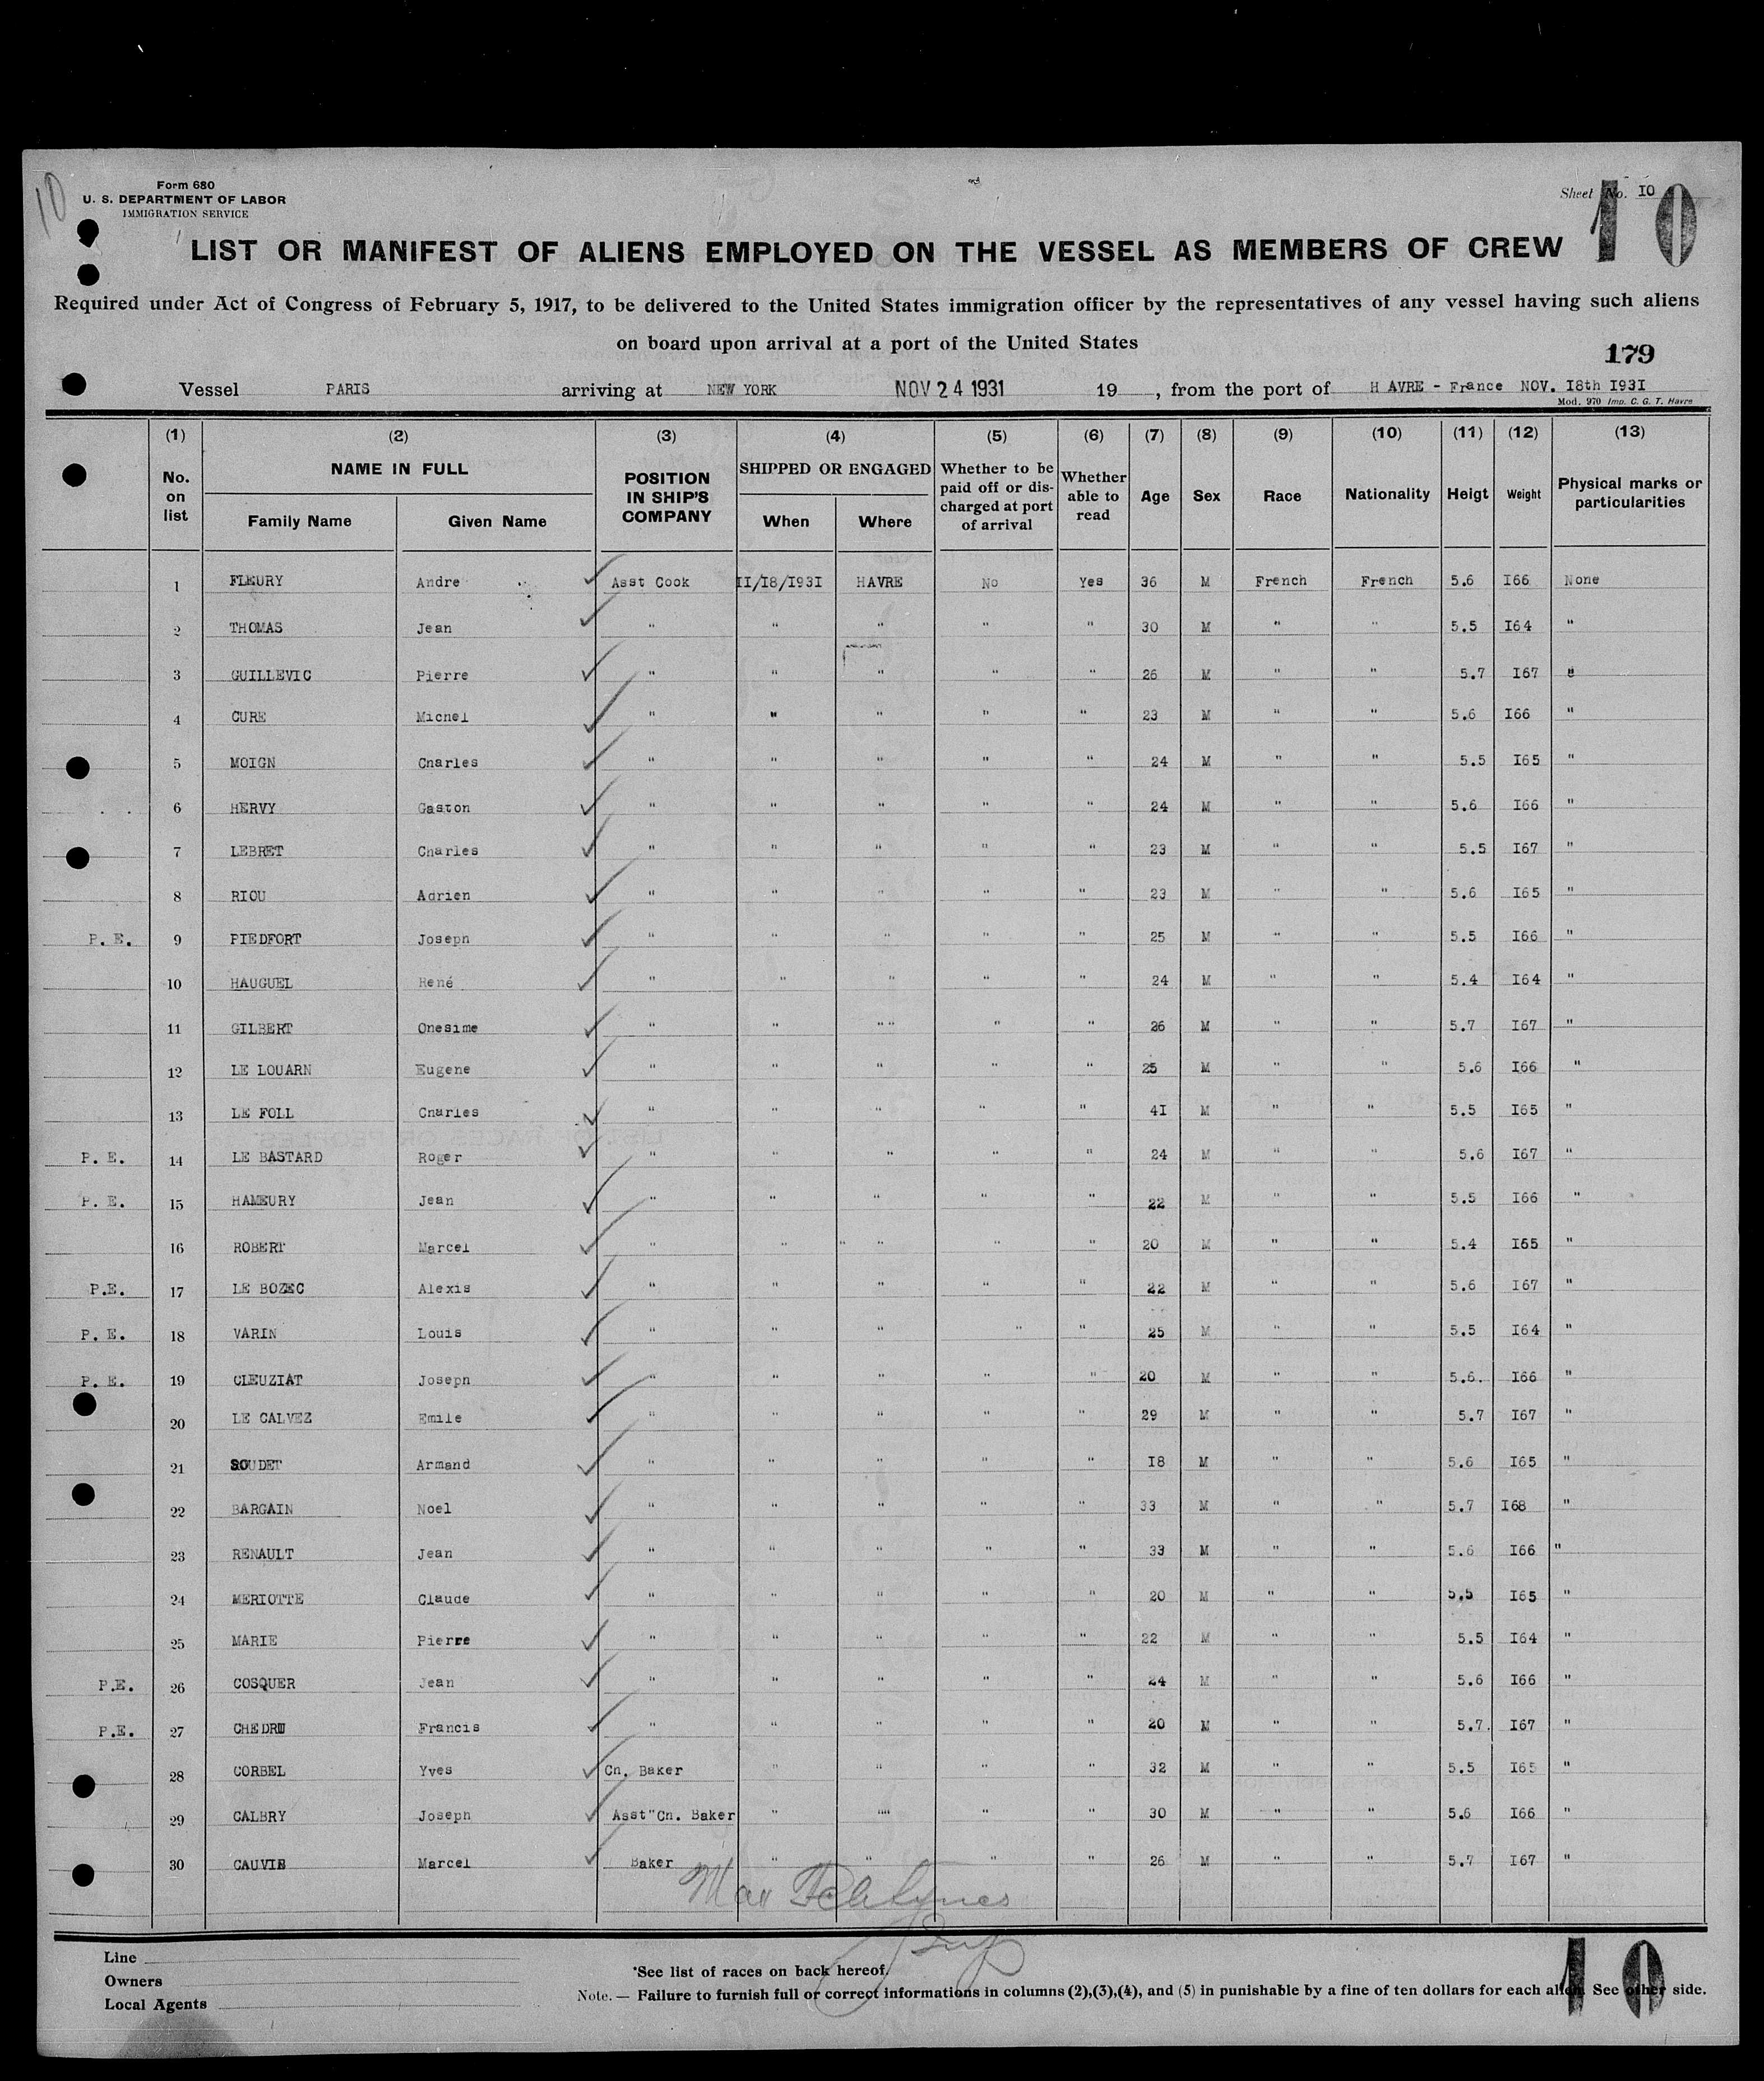 10
Form 680
U. S. DEPARTMENT OF LABOR
IMMIGRATION SERVICE
Sheet No. IO
10
LIST OR MANIFEST OF ALIENS EMPLOYED ON THE VESSEL AS MEMBERS OF CREW
Required under Act of Congress of February 5, 1917, to be delivered to the United States immigration officer by the representatives of any vessel having such aliens
on board upon arrival at a port of the United States
179
Vessel PARIS arriving at NEW YORK NOV 24 1931 19 , from the port of H AVRE - France NOV. I8th I93I
Mod. 970 Imp. C. G. T. Havre
(1) (2) (3) (4) (5) (6) (7) (8) (9) (10) (11) (12) (13)
No. on list NAME IN FULL Family Name Given Name POSITION IN SHIP'S COMPANY SHIPPED OR ENGAGED When Where Whether to be paid off or discharged at port of arrival Whether able to read Age Sex Race Nationality Heigt Weight Physical marks or particularities
1 FLEURY Andre Asst Cook II/I8/I93I HAVRE No Yes 36 M French French 5.6 I66 None
2 THOMAS Jean " " " " " 30 M " " 5.5 I64 "
3 GUILLEVIC Pierre " " " " " 26 M " " 5.7 I67 "
4 CURE Michel " " " " " 23 M " " 5.6 I66 "
5 MOIGN Charles " " " " " 24 M " " 5.5 I65 "
6 HERVY Gaston " " " " " 24 M " " 5.6 I66 "
7 LEBRET Charles " " " " " 23 M " " 5.5 I67 "
8 RIOU Adrien " " " " " 23 M " " 5.6 I65 "
P. E. 9 PIEDFORT Joseph " " " " " 25 M " " 5.5 I66 "
10 HAUGUEL René " " " " " 24 M " " 5.4 I64 "
11 GILBERT Onesime " " " " " " 26 M " " 5.7 I67 "
12 LE LOUARN Eugene " " " " " 25 M " " 5.6 I66 "
13 LE FOLL Charles " " " " " 4I M " " 5.5 I65 "
P. E. 14 LE BASTARD Roger " " " " " 24 M " " 5.6 I67 "
P. E. 15 HAMEURY Jean " " " " " 22 M " " 5.5 I66 "
16 ROBERT Marcel " " " " " " 20 M " " 5.4 I65 "
P.E. 17 LE BOZEC Alexis " " " " " 22 M " " 5.6 I67 "
P. E. 18 VARIN Louis " " " " " 25 M " " 5.5 I64 "
P. E. 19 CLEUZIAT Joseph " " " " " 20 M " " 5.6. I66 "
20 LE CALVEZ Emile " " " " " 29 M " " 5.7 I67 "
21 SOUDET Armand " " " " " I8 M " " 5.6 I65 "
22 BARGAIN Noel " " " " " 33 M " " 5.7 I68 "
23 RENAULT Jean " " " " " 33 M " " 5.6 I66 "
24 MERIOTTE Claude " " " " " 20 M " " 5.5 I65 "
25 MARIE Pierre " " " " " 22 M " " 5.5 I64 "
P.E. 26 COSQUER Jean " " " " " 24 M " " 5.6 I66 "
P.E. 27 CHEDRU Francis " " " " " 20 M " " 5.7. I67 "
28 CORBEL Yves Cn. Baker " " " " 32 M " " 5.5 I65 "
29 CALBRY Joseph Asst"Cn. Baker " "" " " 30 M " " 5.6 I66 "
30 CAUVIN Marcel Baker " " " " 26 M " " 5.7 I67 "
Line
Owners
Local Agents
*See list of races on back hereof.
Note. — Failure to furnish full or correct informations in columns (2),(3),(4), and (5) in punishable by a fine of ten dollars for each alien. See other side.
10